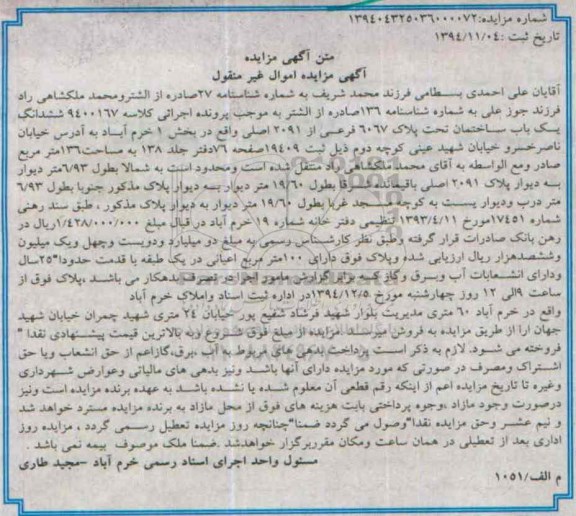 شماره مزایده:۱۳۹۴۰۴۳۲۵۰۳۶۰۰۰۰۷۲
تاریخ ثبت :۱۳۹۴/۱۱/۰۴
متن آگهی مزایده
آگهی مزایده اموال غیر منقول
آقایان علی احمدی بسطامی فرزند محمد شریف به شماره شناسنامه ۲۷صادره از الشترومحمد ملکشاهی راد
فرزند جوز علی به شماره شناسنامه ۱۳۶صادره از الشتر به موجب پرونده اجرائی کلاسه ۹۴۰۰۱۶۷ ششدانگ
یک باب ساختمان تحت پلاک ۶۰۶۷ فرعی از ۲۰۹۱ اصلی واقع در بخش ۱ خرم آباد به آدرس خیابان
ناصرخسرو خیابان شهید عینی کوچه دوم ذیل ثبت ۱۹۴۰۹صفحه ۷۶دفتر جلد ۱۳۸ به مساحت۱۳۶متر مربع
صادر ومع الواسطه به آقای محمد ملکشاهی راد منتقل شده است ومحدود است به شمالا بطول ۶/۹۳متر دیوار
بسه دیوار پلاک ۲۰۹۱ اصلی باقیمانده شرقا بطول ۱۹/۶۰ متر دیوار بسه دیوار پلاک مذکور جنوبا بطول ۶/۹۳
متر درب ودیوار یست به کوچه غربا بطول ۱۹/۶۰ متر دیوار به دیوار پلاک مذکور ، طبق سند رهنی
شماره ۱۷۴۵۱مورخ ۱۳۹۳/۴/۱۱ تنظیمی دفتر خانه شماره ۱۹ خرم آباد در قبال مبلغ ۱/۴۳۸/۰۰۰/۰۰۰ریال در
رهن بانک صادرات قرار گرفته وطبق نظر کارشناس رسمی به مبلغ دو میلیارد ودویست وچهل ویک میلیون
وششصدهزار ریال ارزیابی شده وپلاک فوق دارای ۱۰۰متر مربع اعیانی در یک طبقه با قدمت حدودا"۲۵سال
ودارای انشعابات آب وبرق وگاز که برابر گزارش مامور اجرا در تصرف بدهکار می باشد ،پلاک فوق از
ساعت ۹الی ۱۲ روز چهارشنبه مورخ ۱۳۹۴/۱۲/۵در اداره ثبت اسناد واملاک خرم آباد
واقع در خرم آباد ۶۰ متری مدیریت بلوار شهید فرشاد شفیع پور خیابان ۲۴ متری شهید چمران خیابان شهید
جهان آرا از طریق مزایده به فروش میرسد. مزایده از مبلغ فوق شروع وبه بالاترین قیمت پیشنهادی نقدا "
فروخته می شود. لازم به ذکر است پرداخت بدهی های مربوط به آب ،برق،گازاعم از حق انشعاب ویا حق
اشتراک ومصرف در صورتی که مورد مزایده دارای آنها باشد ونیز بدهی های مالیاتی وعوارض شهرداری
وغیره تا تاریخ مزایده اعم از اینکه رقم قطعی آن معلوم شده یا نشده باشد به عهده برنده مزایده است ونیز
درصورت وجود مازاد ،وجوه پرداختی بابت هزینه های فوق از محل مازاد به برنده مزایده مسترد خواهد شد
و نیم عشر وحق مزایده نقدا"وصول می گردد ضمنا"چنانچه روز مزایده تعطیل رسمی گردد ، مزایده روز
اداری بعد از تعطیلی در همان ساعت ومکان مقرربرگزار خواهدشد .ضمنا ملک موصوف بیمه نمی باشد .
مسئول واحد اجرای اسناد رسمی خرم آباد -مجید طاری
م الف/۱۰۵۱